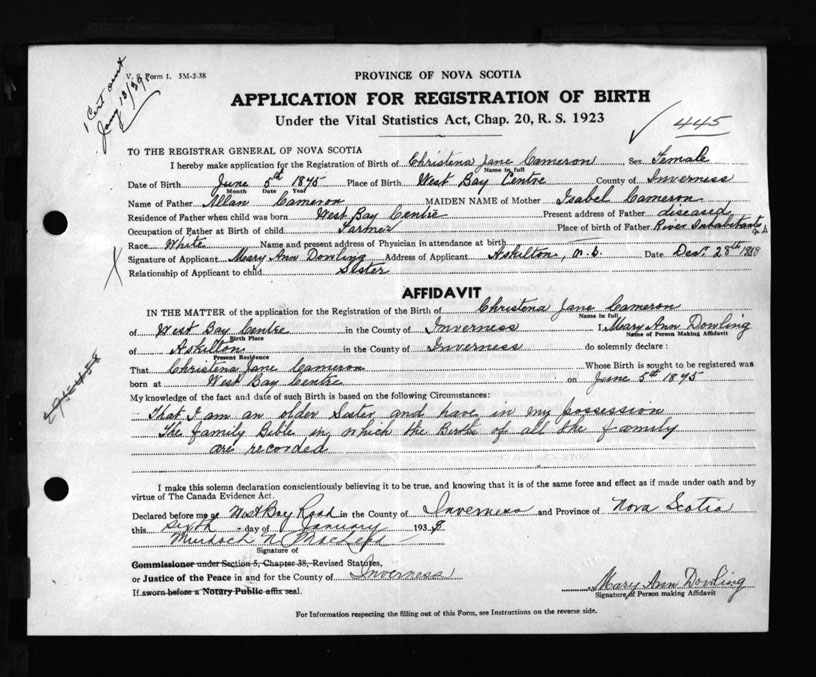 1 Cert sent
Jany 13/39
V. S. Form 1. 5M-2-38
PROVINCE OF NOVA SCOTIA
APPLICATION FOR REGISTRATION OF BIRTH
Under the Vital Statistics Act, Chap. 20, R. S. 1923
445
TO THE REGISTRAR GENERAL OF NOVA SCOTIA
I hereby make application for the Registration of Birth of Christena Jane Cameron Sex Female
Name in full
Date of Birth June 5th 1875 Place of Birth West Bay Centre County of Inverness
Month Date Year
Name of Father Allan Cameron MAIDEN NAME of Mother Isabel Cameron
Residence of Father when child was born West Bay Centre Present address of Father diseased
Occupation of Father at Birth of child Farmer Place of birth of Father River Inhabitants
Race White Name and present address of Physician in attendance at birth
Signature of Applicant Mary Ann Dowling Address of Applicant Askilton, N.S. Date Dec. 28th 1938
Relationship of Applicant to child Sister
AFFIDAVIT
IN THE MATTER of the application for the Registration of the Birth of Christena Jane Cameron
Name in full
of West Bay Centre in the County of Inverness I, Mary Ann Dowling
Birth Place Name of Person Making Affidavit
of Askilton in the County of Inverness do solemnly declare :
Present Residence
That Christena Jane Cameron Whose Birth is sought to be registered was
born at West Bay Centre on June 5th 1875
My knowledge of the fact and date of such Birth is based on the following Circumstances:
That I am an older Sister and have in my possession
The family Bible in which the Births of all the family
are recorded
I make this solemn declaration conscientiously believing it to be true, and knowing that it is of the same force and effect as if made under oath and by
virtue of The Canada Evidence Act.
Declared before me at West Bay Road in the County of Inverness and Province of Nova Scotia
this sixth day of January 1939
Murdoch N MacLeod
Signature of
Commissioner under Section 5, Chapter 38, Revised Statutes,
or Justice of the Peace in and for the County of Inverness
If sworn before a Notary Public affix seal.
Mary Ann Dowling
Signature of Person making Affidavit
For Information respecting the filling out of this Form, see Instructions on the reverse side.